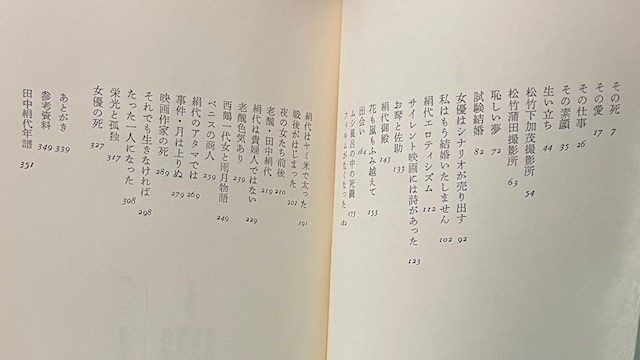 その死 7
その愛 17
その仕事 26
その素顔 35
生い立ち 44
松竹下加茂撮影所 54
松竹蒲田撮影所 63
恥しい夢 72
試験結婚 82
女優はシナリオが売り出す 92
私はもう結婚いたしません 102
絹代エロティシズム 112
サイレント映画には詩があった 123
お琴と佐助 133
絹代御殿 143
花も嵐もふみ越えて 153
出会い 164
ムシ風呂の中の死闘 173
フィルムがなくなった 182
絹代はヤミ米で太った 191
戦後がはじまった 201
夜の女たち前後 210
老醜・田中絹代 219
絹代は貴婦人ではない 229
老醜色気あり 239
西鶴一代女と雨月物語 249
ベニスの商人 259
絹代のアタマでは 269
事件・月は上りぬ 279
映画作家の死 289
それでも生きなければ 298
たった一人になった 308
栄光と孤独 317
女優の死 327
あとがき 339
参考資料 349
田中絹代年譜 351